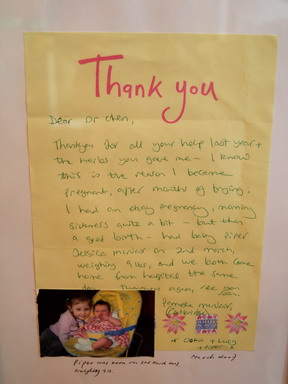 Thank you
Dear Dr Chen,
Thankyou for all your help last year +
the herbs you gave me - I know
this is the reason I became
pregnant, after months of trying.
I had an okay pregnancy, morning
sickness quite a bit - but then
a good birth - had baby Piper
Jessica on 2nd march,
weighing 9lbs, and we both came
home from hospital the same
day. Thankyou again, see you
soon.
Pamela
+ Lucy
+ Piper
Piper was born on 2nd March
weighing 9lb.